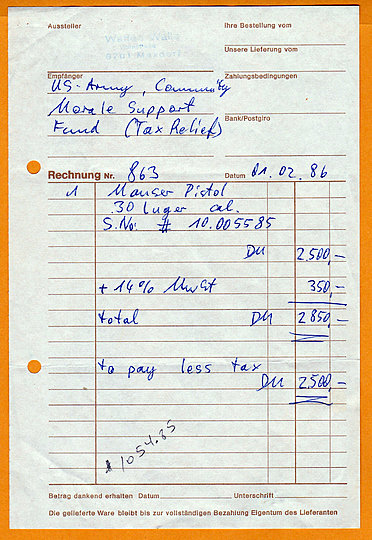 Aussteller
Ihre Bestellung vom
Unsere Lieferung vom
Empfänger
Zahlungsbedingungen
US-Army, Community
Morale Support
Bank/Postgiro
Fund (Tax Relief)
Rechnung Nr. 863 Datum 01.02.86
1 Mauser Pistol
.30 Luger cal.
S.No: # 10.005585
DM 2.500,-
+ 14% MwSt 350,-
total DM 2850,-
to pay less tax
DM 2500,-
1054.85
Betrag dankend erhalten Datum Unterschrift
Die gelieferte Ware bleibt bis zur vollständigen Bezahlung Eigentum des Lieferanten